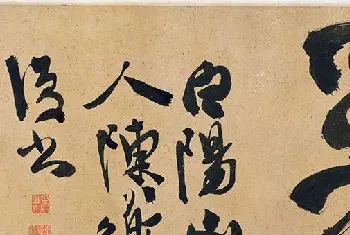 白陽山
人陳道
復書